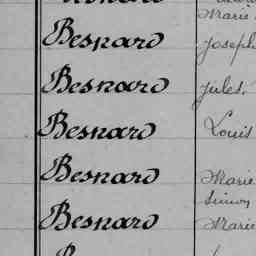 Marie
Besnard Joseph
Besnard Jules.
Besnard Louis
Besnard Marie
Simon
Besnard Marie